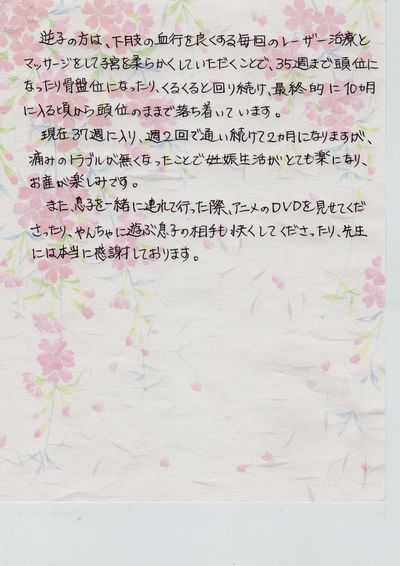 逆子の方は、下肢の血行を良くする毎回のレーザー治療と
マッサージをして子宮を柔らかくしていただくことで、35週まで頭位に
なったり骨盤位になったり、くるくると回り続け、最終的に10か月
に入る頃から頭位のままで落ち着いています。
現在37週に入り、週2回で通い続けて2ヵ月になりますが、
痛みのトラブルが無くなったことで妊娠生活がとても楽になり、
お産が楽しみです。
また、息子を一緒に連れて行った際、アニメのDVDを見せてくだ
さったり、やんちゃに遊ぶ息子の相手も快くしてくださったり、先生
には本当に感謝しております。